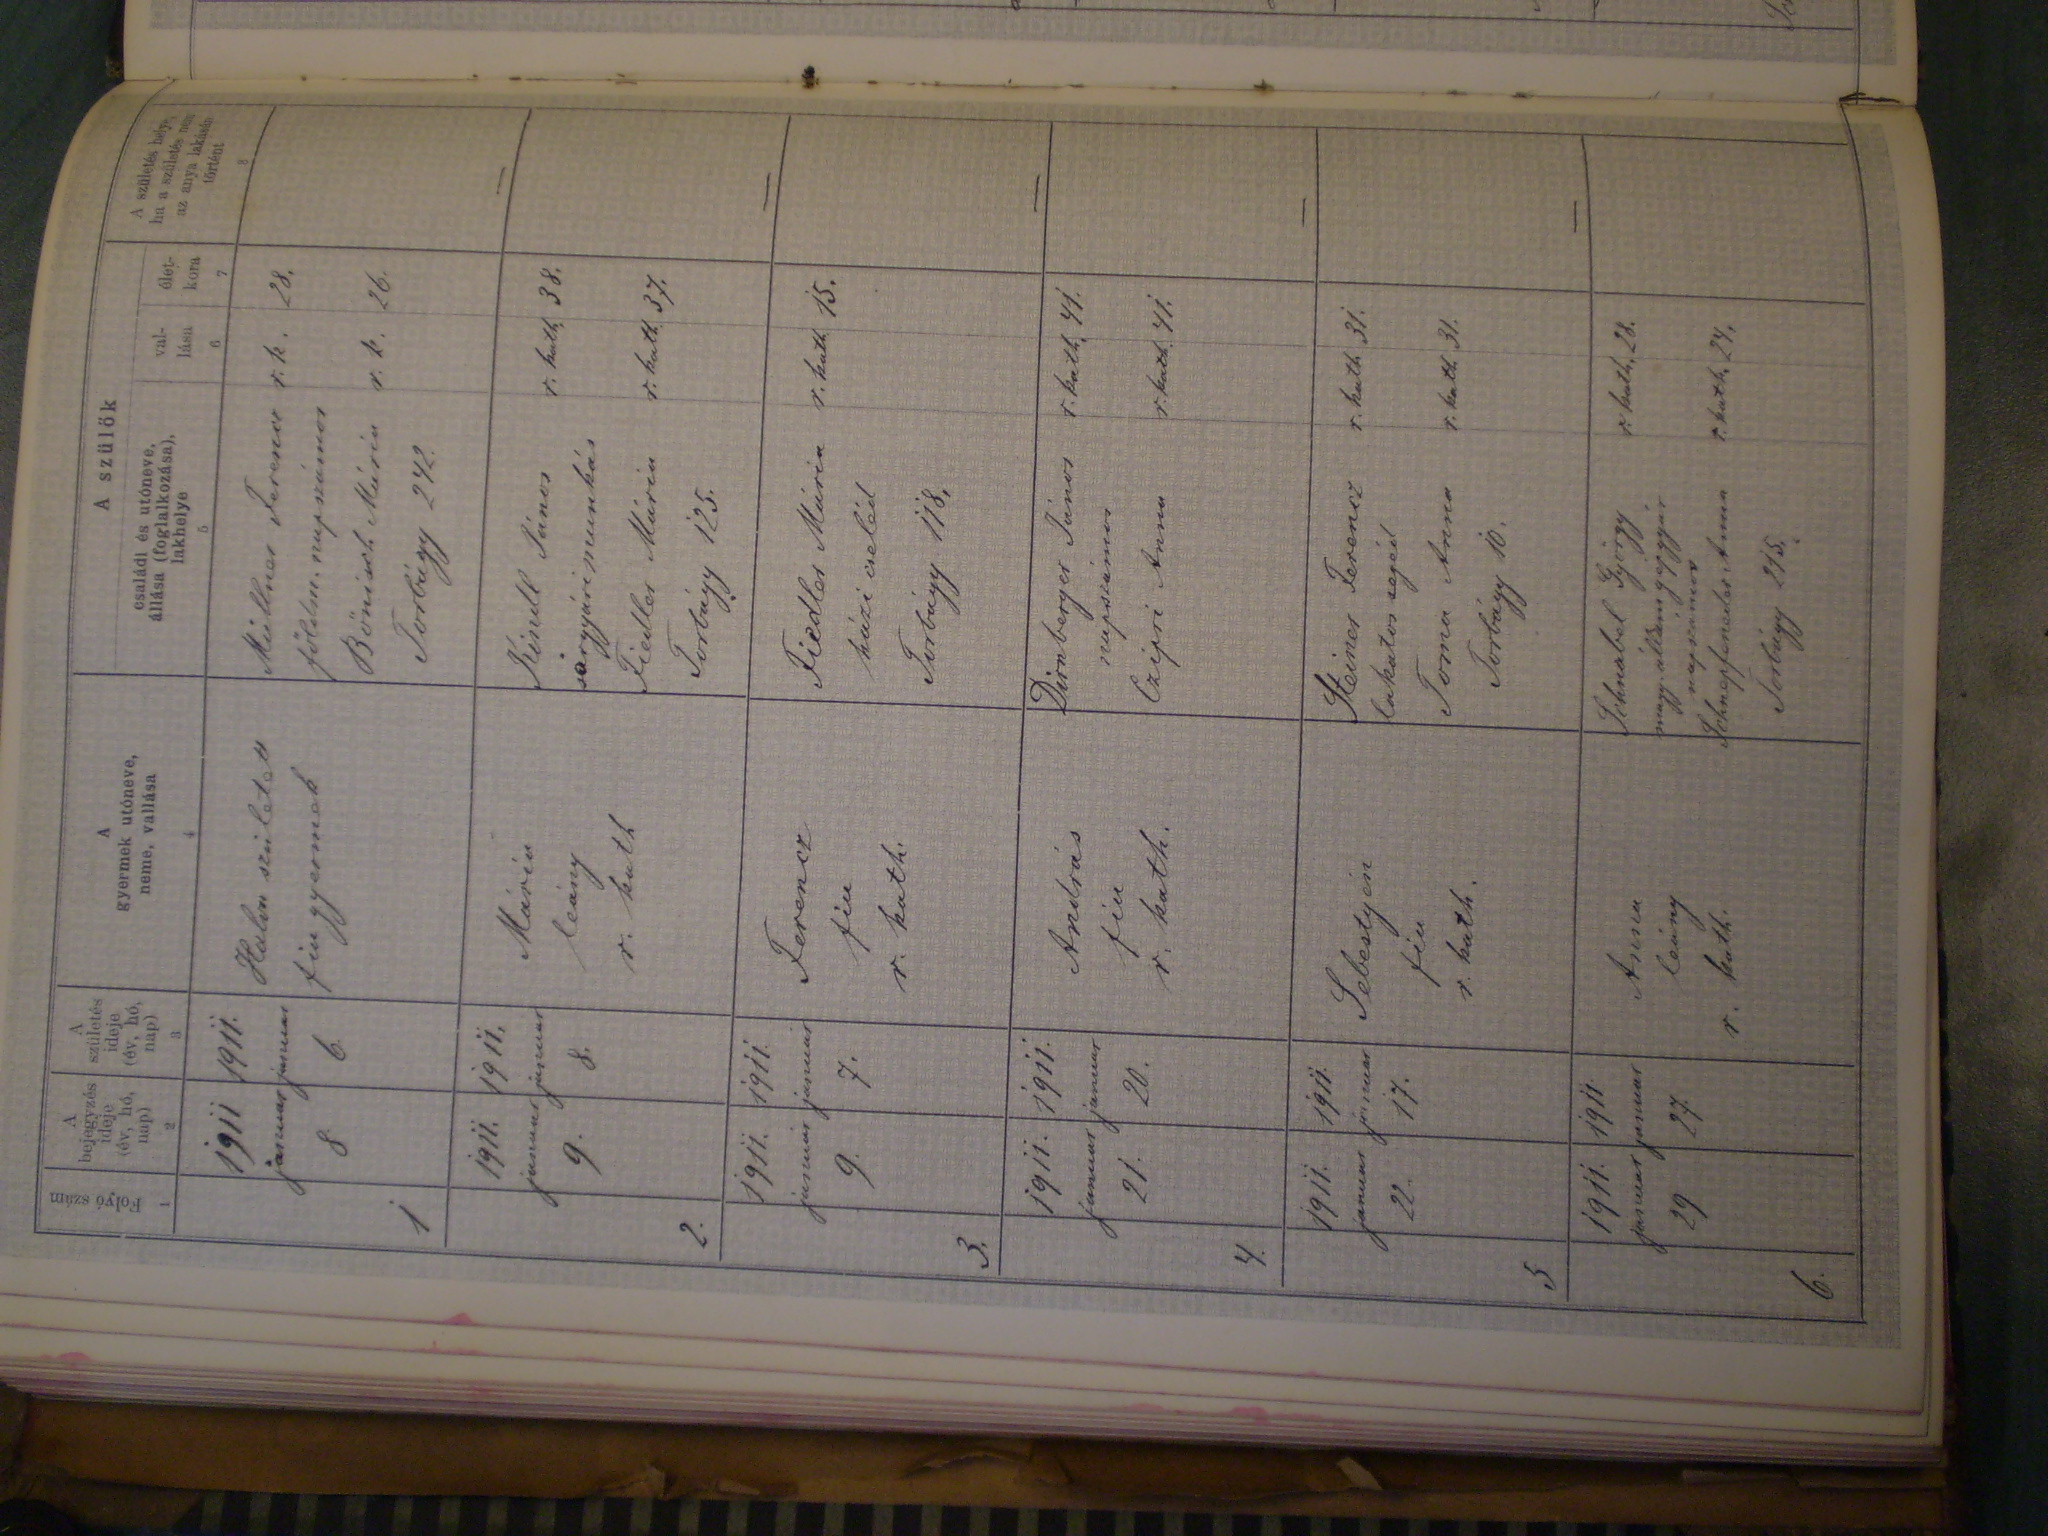 Folyó szám
A bejegyzés ideje (év, hó, nap)
A születés ideje (év, hó, nap)
A gyermek utóneve, neme, vallása
A szülők
családi és utóneve, állása (foglalkozása), lakhelye
val-lása
élet-kora
A születés helye, ha a születés nem az anya lakásán történt
1 2 3 4 5 6 7 8
1
1911 január 8
1911. január 6.
Halva született
fiu gyermek
Müllner Ferencz r. k. 28.
földm. napszámos
Bönisch Mária r. k. 26.
Torbágy 242.
2.
1911. január 9.
1911. január 8.
Mária
leány
r. kath
János r. kath. 38.
Fiedler Mária r. kath. 37.
Torbágy 125.
—
3.
1911. január 9.
1911. január 7.
Ferencz
fiu
r. kath.
Fiedler Mária r. kath. 15.
házi cseléd
Torbágy 118.
—
4.
1911. január 21.
1911. január 20.
András
fiu
r. kath.
Dirnberger János r. kath. 41.
napszámos
Czipri Anna r. kath. 41.
—
5
1911. január 22.
1911. január 17.
Sebestyén
fiu
r. kath.
Steiner Ferencz r. kath. 31.
lakatos segéd
Toma Anna r. kath. 31.
Torbágy 10.
—
6.
1911. január 29
1911. január 27.
Anna
leány
r. kath.
Schnabel György r. kath. 28.
napszámos
Anna r. kath. 24.
Torbágy 275.
—